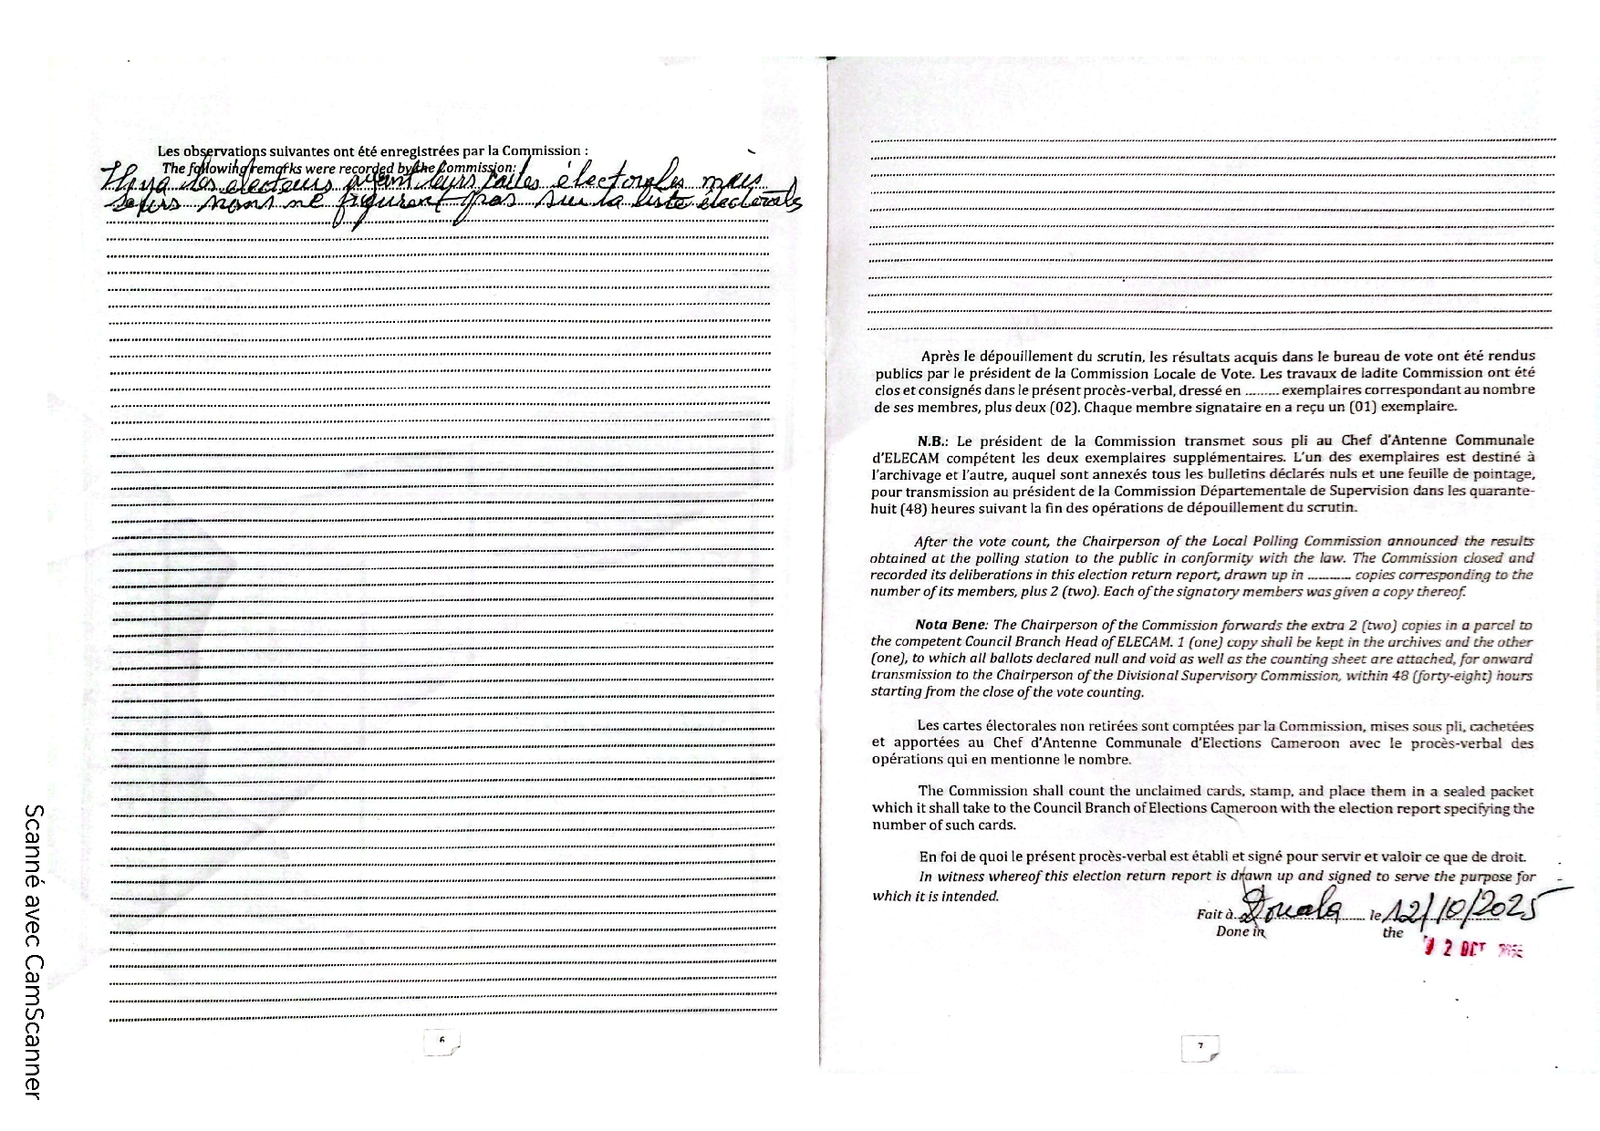 Les observations suivantes ont été enregistrées par la Commission :
The following remarks were recorded by the Commission:
Il y a des électeurs ayant leurs cartes électorales mais
leurs noms ne figurent pas sur la liste électorale
6
Après le dépouillement du scrutin, les résultats acquis dans le bureau de vote ont été rendus
publics par le président de la Commission Locale de Vote. Les travaux de ladite Commission ont été
clos et consignés dans le présent procès-verbal, dressé en ......... exemplaires correspondant au nombre
de ses membres, plus deux (02). Chaque membre signataire en a reçu un (01) exemplaire.
N.B.: Le président de la Commission transmet sous pli au Chef d'Antenne Communale
d'ELECAM compétent les deux exemplaires supplémentaires. L'un des exemplaires est destiné à
l'archivage et l'autre, auquel sont annexés tous les bulletins déclarés nuls et une feuille de pointage,
pour transmission au président de la Commission Départementale de Supervision dans les quarante-
huit (48) heures suivant la fin des opérations de dépouillement du scrutin.
After the vote count, the Chairperson of the Local Polling Commission announced the results
obtained at the polling station to the public in conformity with the law. The Commission closed and
recorded its deliberations in this election return report, drawn up in ........... copies corresponding to the
number of its members, plus 2 (two). Each of the signatory members was given a copy thereof.
Nota Bene: The Chairperson of the Commission forwards the extra 2 (two) copies in a parcel to
the competent Council Branch Head of ELECAM. 1 (one) copy shall be kept in the archives and the other
(one), to which all ballots declared null and void as well as the counting sheet are attached, for onward
transmission to the Chairperson of the Divisional Supervisory Commission, within 48 (forty-eight) hours
starting from the close of the vote counting.
Les cartes électorales non retirées sont comptées par la Commission, mises sous pli, cachetées
et apportées au Chef d'Antenne Communale d'Elections Cameroon avec le procès-verbal des
opérations qui en mentionne le nombre.
The Commission shall count the unclaimed cards, stamp, and place them in a sealed packet
which it shall take to the Council Branch of Elections Cameroon with the election report specifying the
number of such cards.
En foi de quoi le présent procès-verbal est établi et signé pour servir et valoir ce que de droit.
In witness whereof this election return report is drawn up and signed to serve the purpose for
which it is intended.
Fait à Douala le 12/10/2025
Done in the
2 OCT
7
Scanné avec CamScanner